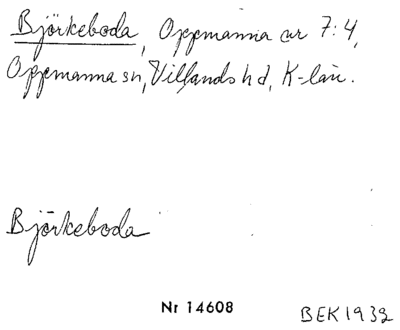 Björkeboda, Oppmanna nr 7:4,
Oppmanna sn, Villands hd, K-län.
Björkeboda
Nr 14608
BEK 1932